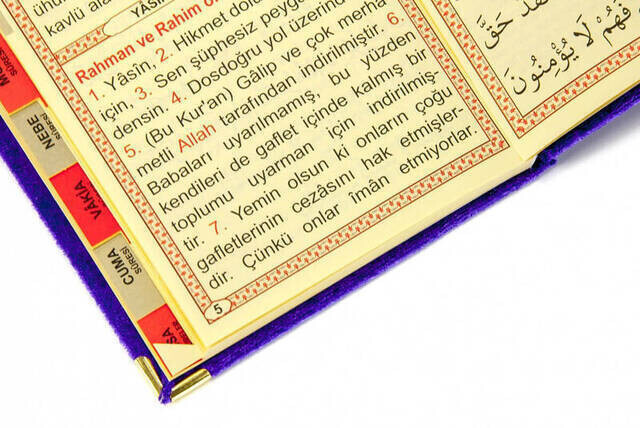 YÂSİN
kavlü
Rahman ve Rahim
1. Yâsîn, 2. Hikmet
için, 3. Sen şüphesiz
densin. 4. Dosdoğru yol
5. (Bu Kur'an) Gâlip ve çok merha-
metli Allah tarafından indirilmiştir. 6.
Babaları uyarılmamış, bu yüzden
kendileri de gaflet içinde kalmış bir
toplumu uyarman için indirilmiş-
tir. 7. Yemin olsun ki onların çoğu
gafletlerinin cezâsını hak etmişler-
dir. Çünkü onlar îmân etmiyorlar.
5
NEBE
SÛRESİ
VÂKIA
CUMA
SÛRESİ
حَقَّ
فَهُمْ لَا يُؤْمِنُونَ